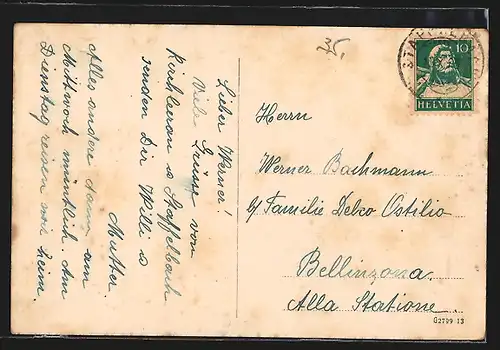 Lieber Werner!
Viele Grüsse von
Kirchleerau u Staffelbach
senden Dir Willi u
Mutter
Alles andere dann am
Mittwoch mündlich. Am
Dienstag reisen wir heim.
35.
10
HELVETIA
Herrn
Werner Bachmann
b/ Familie Delco Ostilio
Bellinzona
Alla Statione
G2799 13